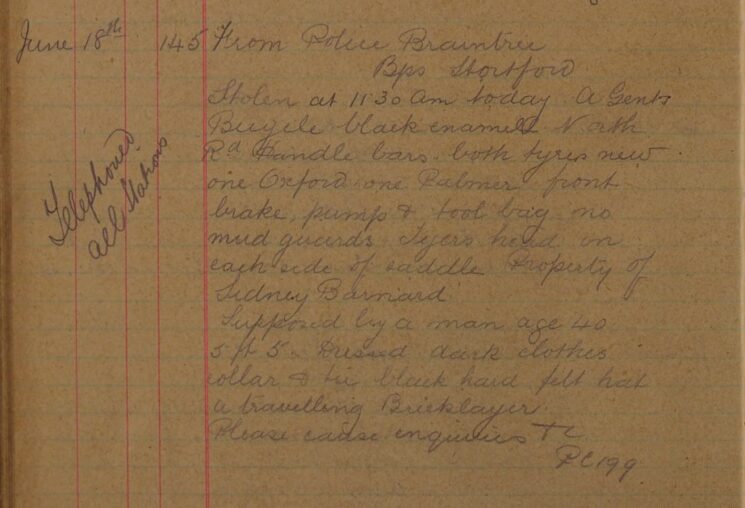 June 18th 145 From Police Braintree
Bps Stortford
Stolen at 11 30 am today A Gents
Bicycle black enamel North
Rd Handle bars. both tyres new
one Oxford one Palmer front
brake, pump & tool bag no
mud guards. Tyers head on
each side of saddle Property of
Sidney Barnard
Supposed by a man age 40
5 ft 5. Dressed dark clothes
collar & tie black hard felt hat
a travelling Bricklayer.
Please cause enquiries
PC 199
Telephoned
all Stations